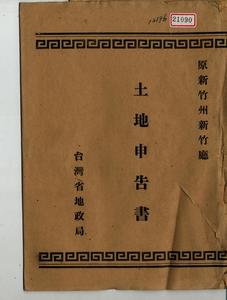 21090
原新竹州新竹廳
土地申告書
台灣省地政局